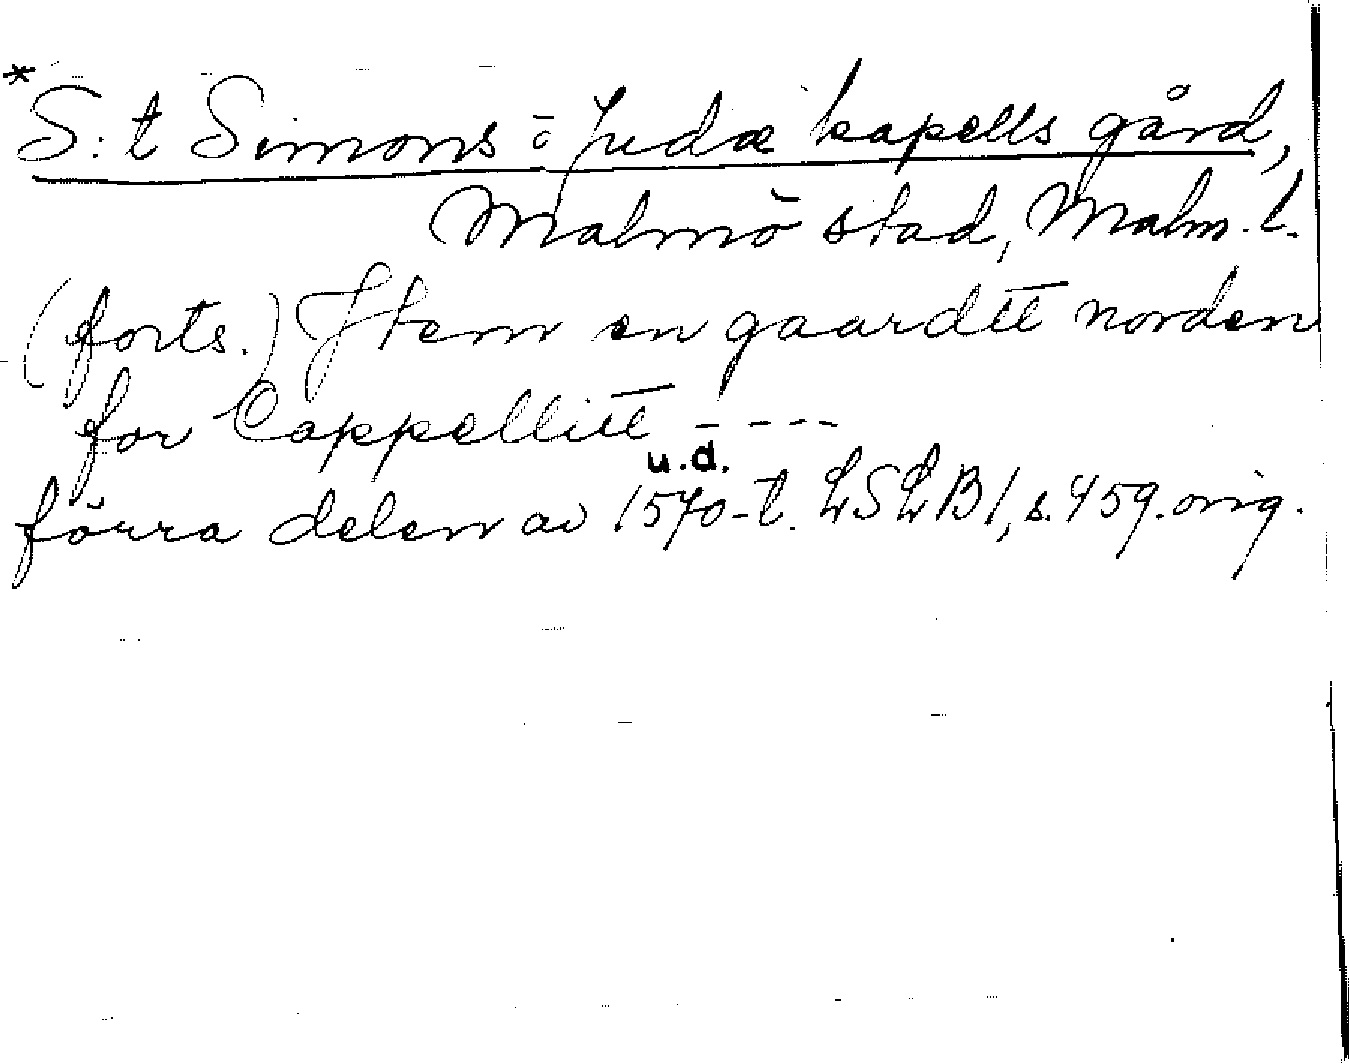 *
S:t Simons o Judæ kapells gård,
Malmö stad, Malm. l.
(forts.) Item en gaardtt norden
for Cappellitt - - - -
u.d.
förra delen av 1570-t. LSLB 1, s. 459. orig.